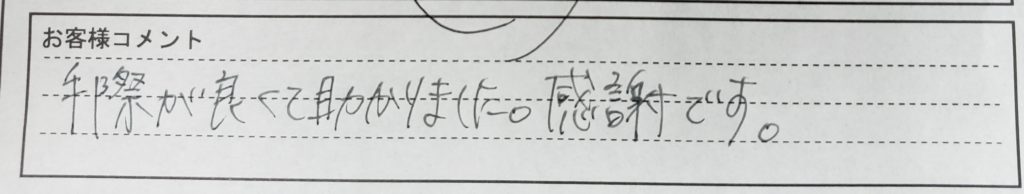 お客様コメント
手際が良くて助かりました。感謝です。